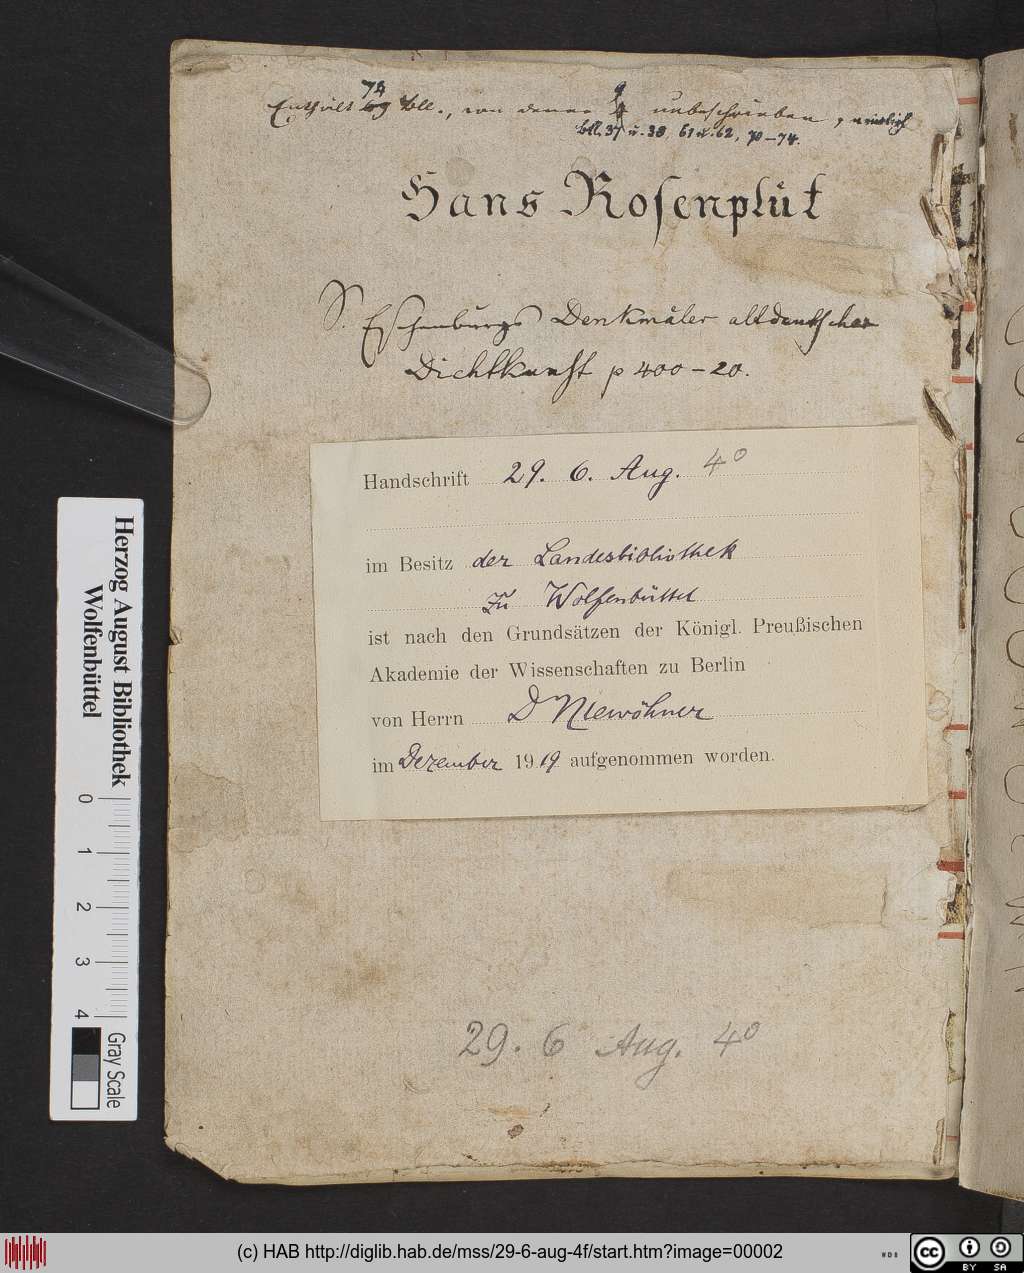 74
Enthält 69 bll., von denen 4 unbeschrieben, nämlich
9
bll. 37 u. 38, 61 u. 62, 70-74.
Hans Rosenplüt
S. Eschenburgs Denkmäler altdeutscher
Dichtkunst p 400-20.
Handschrift 29. 6. Aug. 4°
im Besitz der Landesbibliothek
zu Wolfenbüttel
ist nach den Grundsätzen der Königl. Preußischen
Akademie der Wissenschaften zu Berlin
von Herrn D Niewöhner
im Dezember 1919 aufgenommen worden.
29. 6 Aug. 4°
Herzog August Bibliothek
Wolfenbüttel
0 1 2 3 4
Gray Scale
(c) HAB http://diglib.hab.de/mss/29-6-aug-4f/start.htm?image=00002
WDB
cc
BY SA